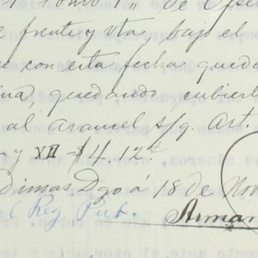 Tomo 1" de
frente y vta, bajo el
con esta fecha queda
quedando cubiert
al arancel s/q. Art.
y XII $4.12
Dimas Dgo á 18 de Nov
Reg Pub.
Arman